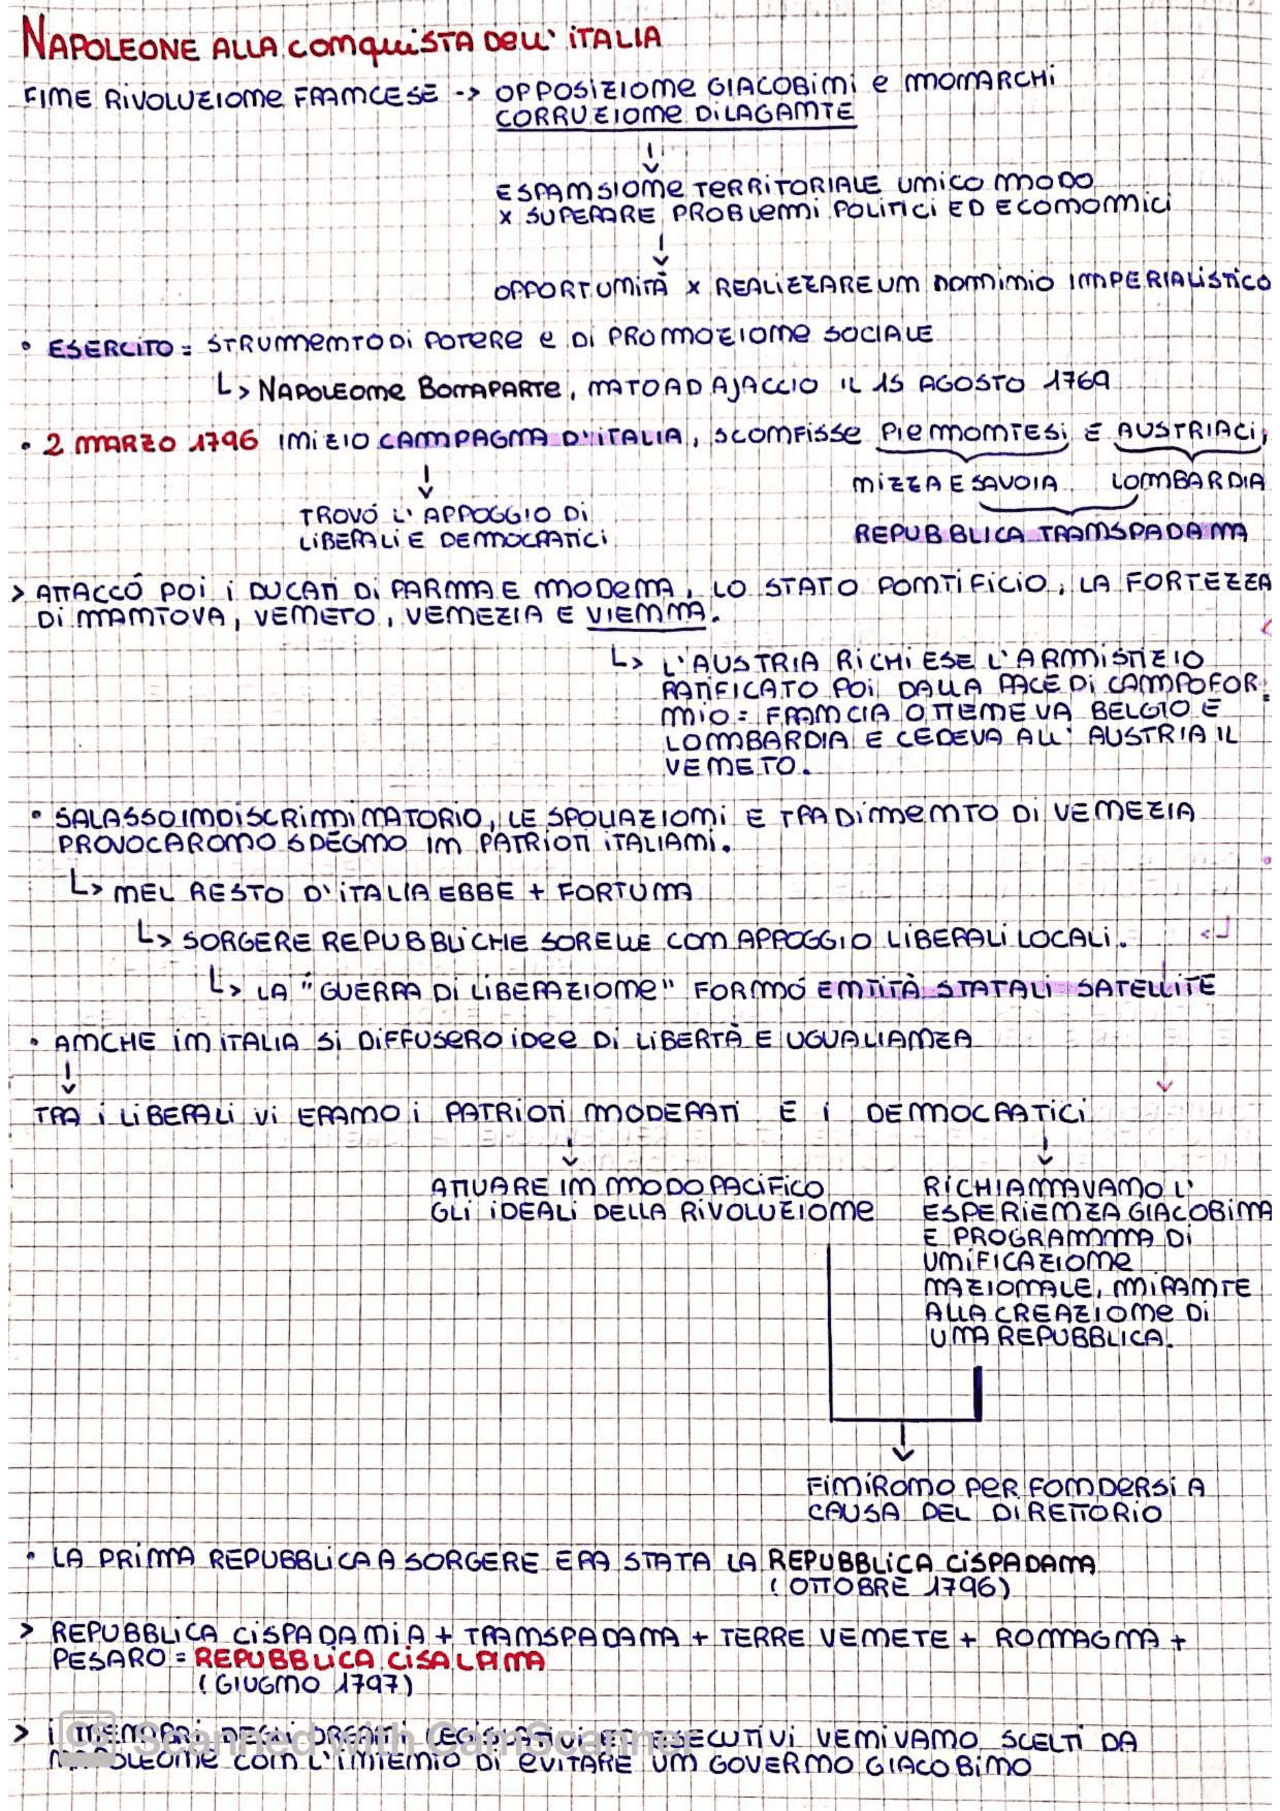 NAPOLEONE ALLA CONQUISTA DELL' ITALIA
FINE RIVOLUZIONE FRANCESE -> OPPOSIZIONE GIACOBINI e MONARCHI
CORRUZIONE DILAGANTE
ESPANSIONE TERRITORIALE UNICO MODO
x SUPERARE PROBLEMI POLITICI ED ECONOMICI
OPPORTUNITÀ x REALIZZARE UN DOMINIO IMPERIALISTICO
• ESERCITO = STRUMENTO DI POTERE e DI PROMOZIONE SOCIALE
↳ NAPOLEONE BONAPARTE, NATO AD AJACCIO IL 15 AGOSTO 1769
• 2 MARZO 1796 INIZIO CAMPAGNA D'ITALIA, SCONFISSE PIEMONTESI E AUSTRIACI,
NIZZA E SAVOIA LOMBARDIA
TROVÓ L'APPOGGIO DI
LIBERALI E DEMOCRATICI
REPUBBLICA TRANSPADANA
> ATTACCÓ POI I DUCATI DI PARMA E MODENA, LO STATO PONTIFICIO, LA FORTEZZA
DI MANTOVA, VENETO, VENEZIA E VIENNA.
↳ L'AUSTRIA RICHIESE L'ARMISTIZIO
RATIFICATO POI DALLA PACE DI CAMPOFOR=
MIO = FRANCIA OTTENEVA BELGIO E
LOMBARDIA E CEDEVA ALL' AUSTRIA IL
VENETO.
• SALASSO INDISCRIMINATORIO, LE SPOLIAZIONI E TRADIMENTO DI VENEZIA
PROVOCARONO SDEGNO IN PATRIOTI ITALIANI.
↳ NEL RESTO D'ITALIA EBBE + FORTUNA
↳ SORGERE REPUBBLICHE SORELLE CON APPOGGIO LIBERALI LOCALI.
↳ LA "GUERRA DI LIBERAZIONE" FORMÓ ENTITÀ STATALI SATELLITE
• ANCHE IN ITALIA SI DIFFUSERO IDEE DI LIBERTÀ E UGUALIANZA
TRA I LIBERALI VI ERANO I PATRIOTI MODERATI E I DEMOCRATICI
ATTUARE IN MODO PACIFICO
GLI IDEALI DELLA RIVOLUZIONE
RICHIAMAVANO L'
ESPERIENZA GIACOBINA
E PROGRAMMA DI
UNIFICAZIONE
NAZIONALE, MIRANTE
ALLA CREAZIONE DI
UNA REPUBBLICA.
FINIRONO PER FONDERSI A
CAUSA DEL DIRETTORIO
• LA PRIMA REPUBBLICA A SORGERE ERA STATA LA REPUBBLICA CISPADANA
(OTTOBRE 1796)
> REPUBBLICA CISPADANIA + TRANSPADANA + TERRE VENETE + ROMAGNA +
PESARO = REPUBBLICA CISALPINA
(GIUGNO 1797)
> I MEMBRI DEGLI ORGANI LEGISLATIVI ED ESECUTIVI VENIVANO SCELTI DA
NAPOLEONE CON L'INTENTO DI EVITARE UN GOVERNO GIACOBINO
CS Scanned with CamScanner